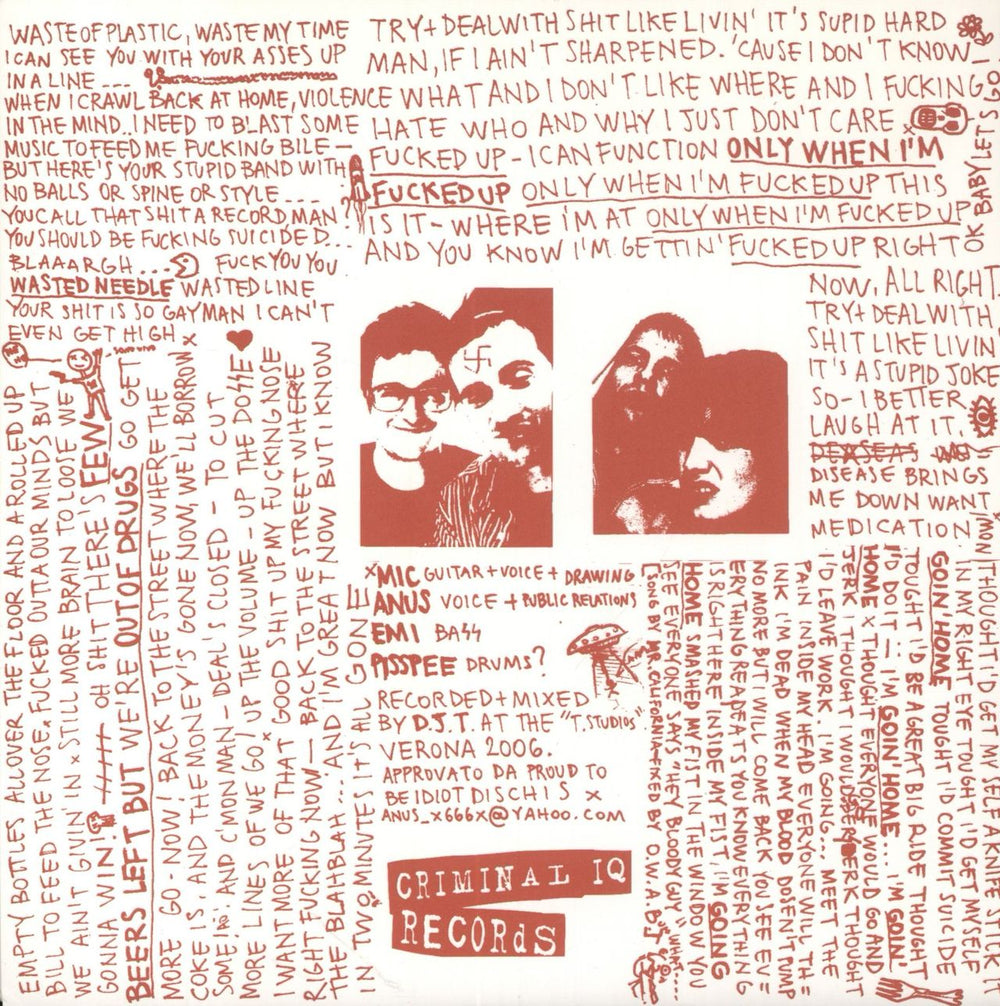 WASTE OF PLASTIC, WASTE MY TIME
I CAN SEE YOU WITH YOUR ASSES UP
IN A LINE ...
WHEN I CRAWL BACK AT HOME, VIOLENCE
IN THE MIND.. I NEED TO BLAST SOME
MUSIC TO FEED ME FUCKING BILE —
BUT HERE'S YOUR STUPID BAND WITH
NO BALLS OR SPINE OR STYLE ....
YOU CALL THAT SHIT A RECORD MAN?
YOU SHOULD BE FUCKING SUICIDED...
BLAAARGH.... FUCK YOU YOU
WASTED NEEDLE WASTED LINE
YOUR SHIT IS SO GAY MAN I CAN'T
EVEN GET HIGH x
TRY + DEAL WITH SHIT LIKE LIVIN' IT'S SUPID HARD
MAN, IF I AIN'T SHARPENED. 'CAUSE I DON'T KNOW
WHAT AND I DON'T LIKE WHERE AND I FUCKING
HATE WHO AND WHY I JUST DON'T CARE x
FUCKED UP - I CAN FUNCTION ONLY WHEN I'M
FUCKED UP ONLY WHEN I'M FUCKED UP THIS
IS IT - WHERE I'M AT ONLY WHEN I'M FUCKED UP
AND YOU KNOW I'M GETTIN' FUCKED UP RIGHT
NOW, ALL RIGHT
TRY + DEAL WITH
SHIT LIKE LIVIN
IT'S A STUPID JOKE
SO - I BETTER
LAUGH AT IT.
DISEASE BRINGS
ME DOWN WANT
MEDICATION
OK BABY LET'S GO!
EMPTY BOTTLES ALLOVER THE FLOOR AND A ROLLED UP
BILL TO FEED THE NOSE x FUCKED OUTA OUR MINDS BUT
WE AIN'T GIVIN' IN x STILL MORE BRAIN TO LOOSE WE
GONNA WIN! OH SHIT THERE'S FEW
BEERS LEFT BUT WE'RE OUT OF DRUGS GO GET
MORE GO - NOW! BACK TO THE STREET WHERE THE
COKE IS, AND THE MONEY'S GONE NOW, WE'LL BORROW x
SOME AND C'MON MAN - DEAL'S CLOSED - TO CUT
MORE LINES OF WE GO! UP THE VOLUME - UP THE DOSSE
I WANT MORE OF THAT x GOOD SHIT UP MY FUCKING NOSE
RIGHT FUCKING NOW — BACK TO THE STREET WHERE
THE BLAHBLAH ... AND I'M GREAT NOW BUT I KNOW
IN TWO MINUTES IT'S ALL GONE
x MIC GUITAR + VOICE + DRAWING
ANUS VOICE + PUBLIC RELATIONS
EMI BASS
PISSPEE DRUMS?
RECORDED + MIXED
BY D.J.T. AT THE "T. STUDIOS"
VERONA 2006.
APPROVATO DA PROUD TO
BE IDIOT DISCHIS x
ANUS_X666X@YAHOO.COM
CRIMINAL IQ
RECORDS
NOW I'D GET MY SELF A KNIFE STICK IT
IN MY RIGHT EYE TOUGHT I'D GET MYSELF
GOIN' HOME TOUGHT I'D COMMIT SUICIDE
TOUGHT I'D BE A GREAT BIG RIDE THOUGHT
I'D DO IT I'M GOIN HOME... I'M GOIN'
HOME x THOUGHT EVERYONE WOULD GO AND
JERK I THOUGHT I WOULD JERK THOUGHT
I'D LEAVE WORK. I'M GOING... MEET THE
PAIN INSIDE MY HEAD EVERYONE WILL TH=
INK I'M DEAD WHEN MY BLOOD DOSEN'T PUMP
NO MORE BUT I WILL COME BACK YOU SEE EV=
ERYTHING READ EATS YOU KNOW EVERYTHING
IS RIGHT HERE INSIDE MY FIST I'M GOING
HOME SMASHED MY FIST IN THE WINDOW YOU
SEE EVERYONE SAYS "HEY BLOODY GUY" WHAT....
[SONG BY MR. CALIFORNIA - FIXED BY O.W.A.B.]